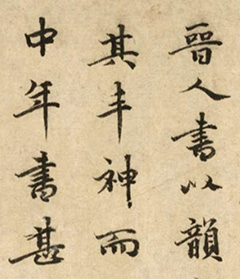 晉人書以韻
其丰神而
中年書甚